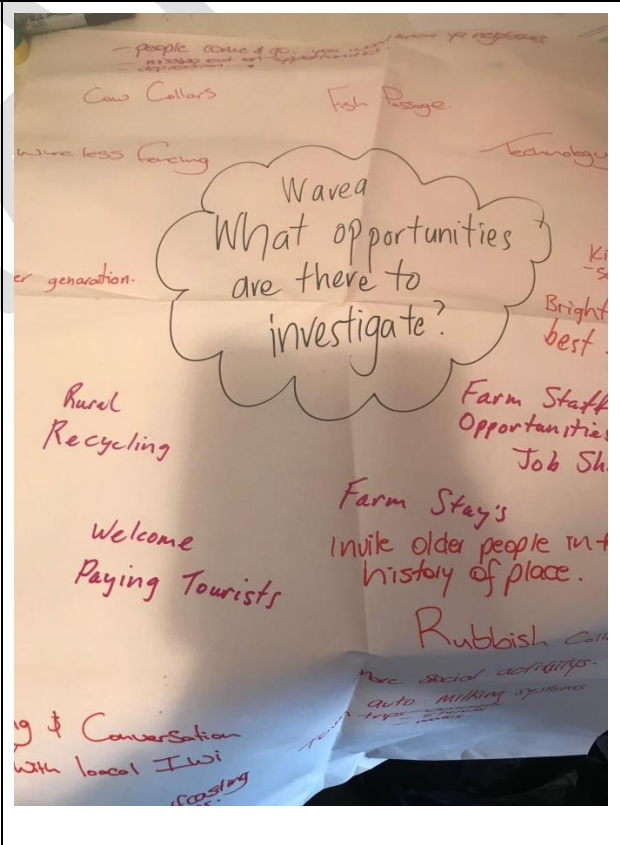 - people come & go... you won't know ya neighbours
- missing out on opportunities.
- depression.
Cow Collars
Fish Passage.
wireless fencing
Technology
Wavea
What opportunities
are there to
investigate?
er genaration.
Ki
Bright
best
Rural
Recycling
Farm Staff
Opportunities
Job Sh
Farm Stay's
Invile older people int
history of place.
Welcome
Paying Tourists
Rubbish Coll
More social activitys.
auto milking systems
trips
ng & Conversation
with loacol Iwi